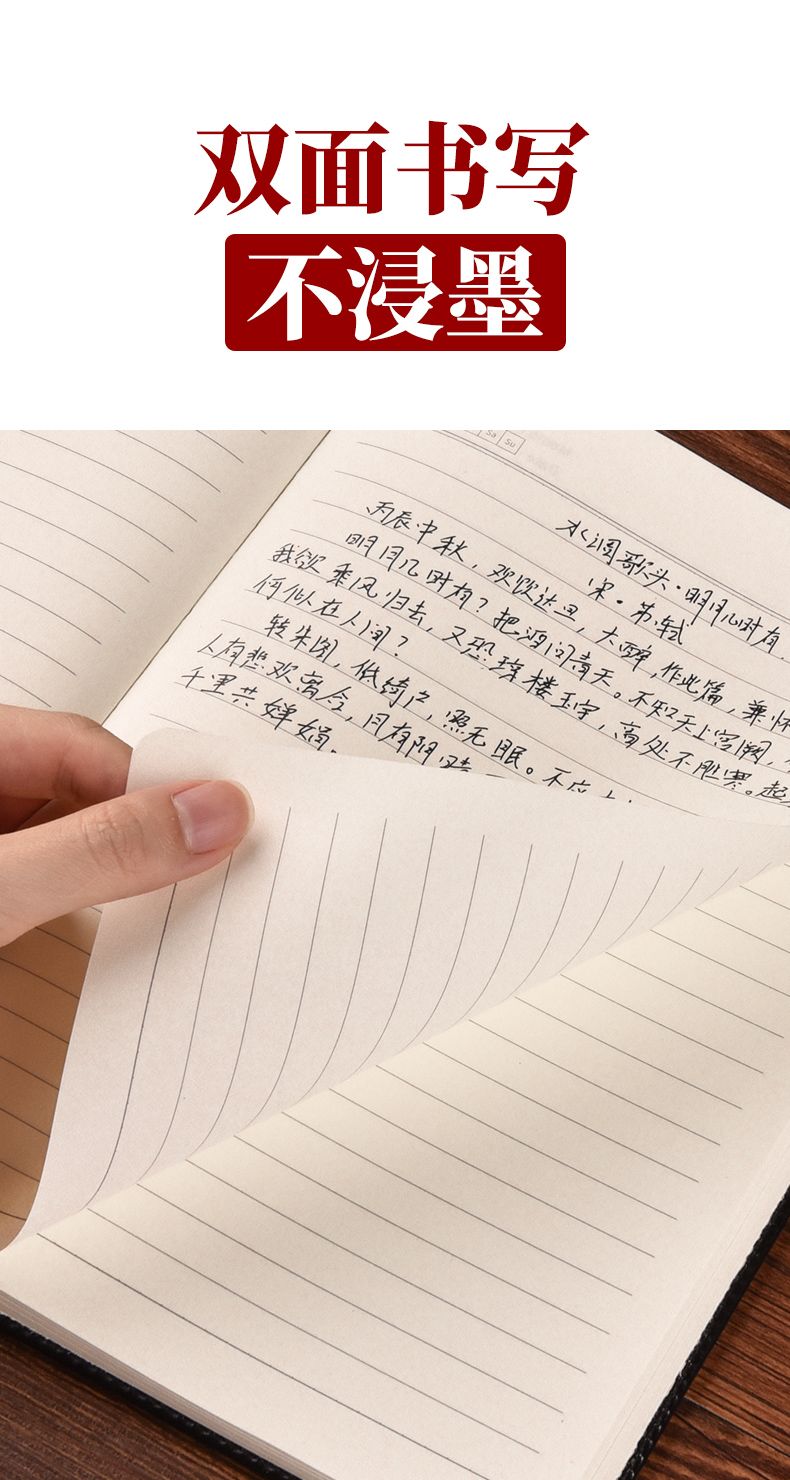 双面书写
不浸墨
Sa Su
水调歌头·明月几时有
宋·苏轼
丙辰中秋，欢饮达旦，大醉，作此篇，兼怀
明月几时有？把酒问青天。不知天上宫阙，
我欲乘风归去，又恐琼楼玉宇，高处不胜寒。起
何似在人间？
转朱阁，低绮户，照无眠。不应
人有悲欢离合，月有阴晴
千里共婵娟。